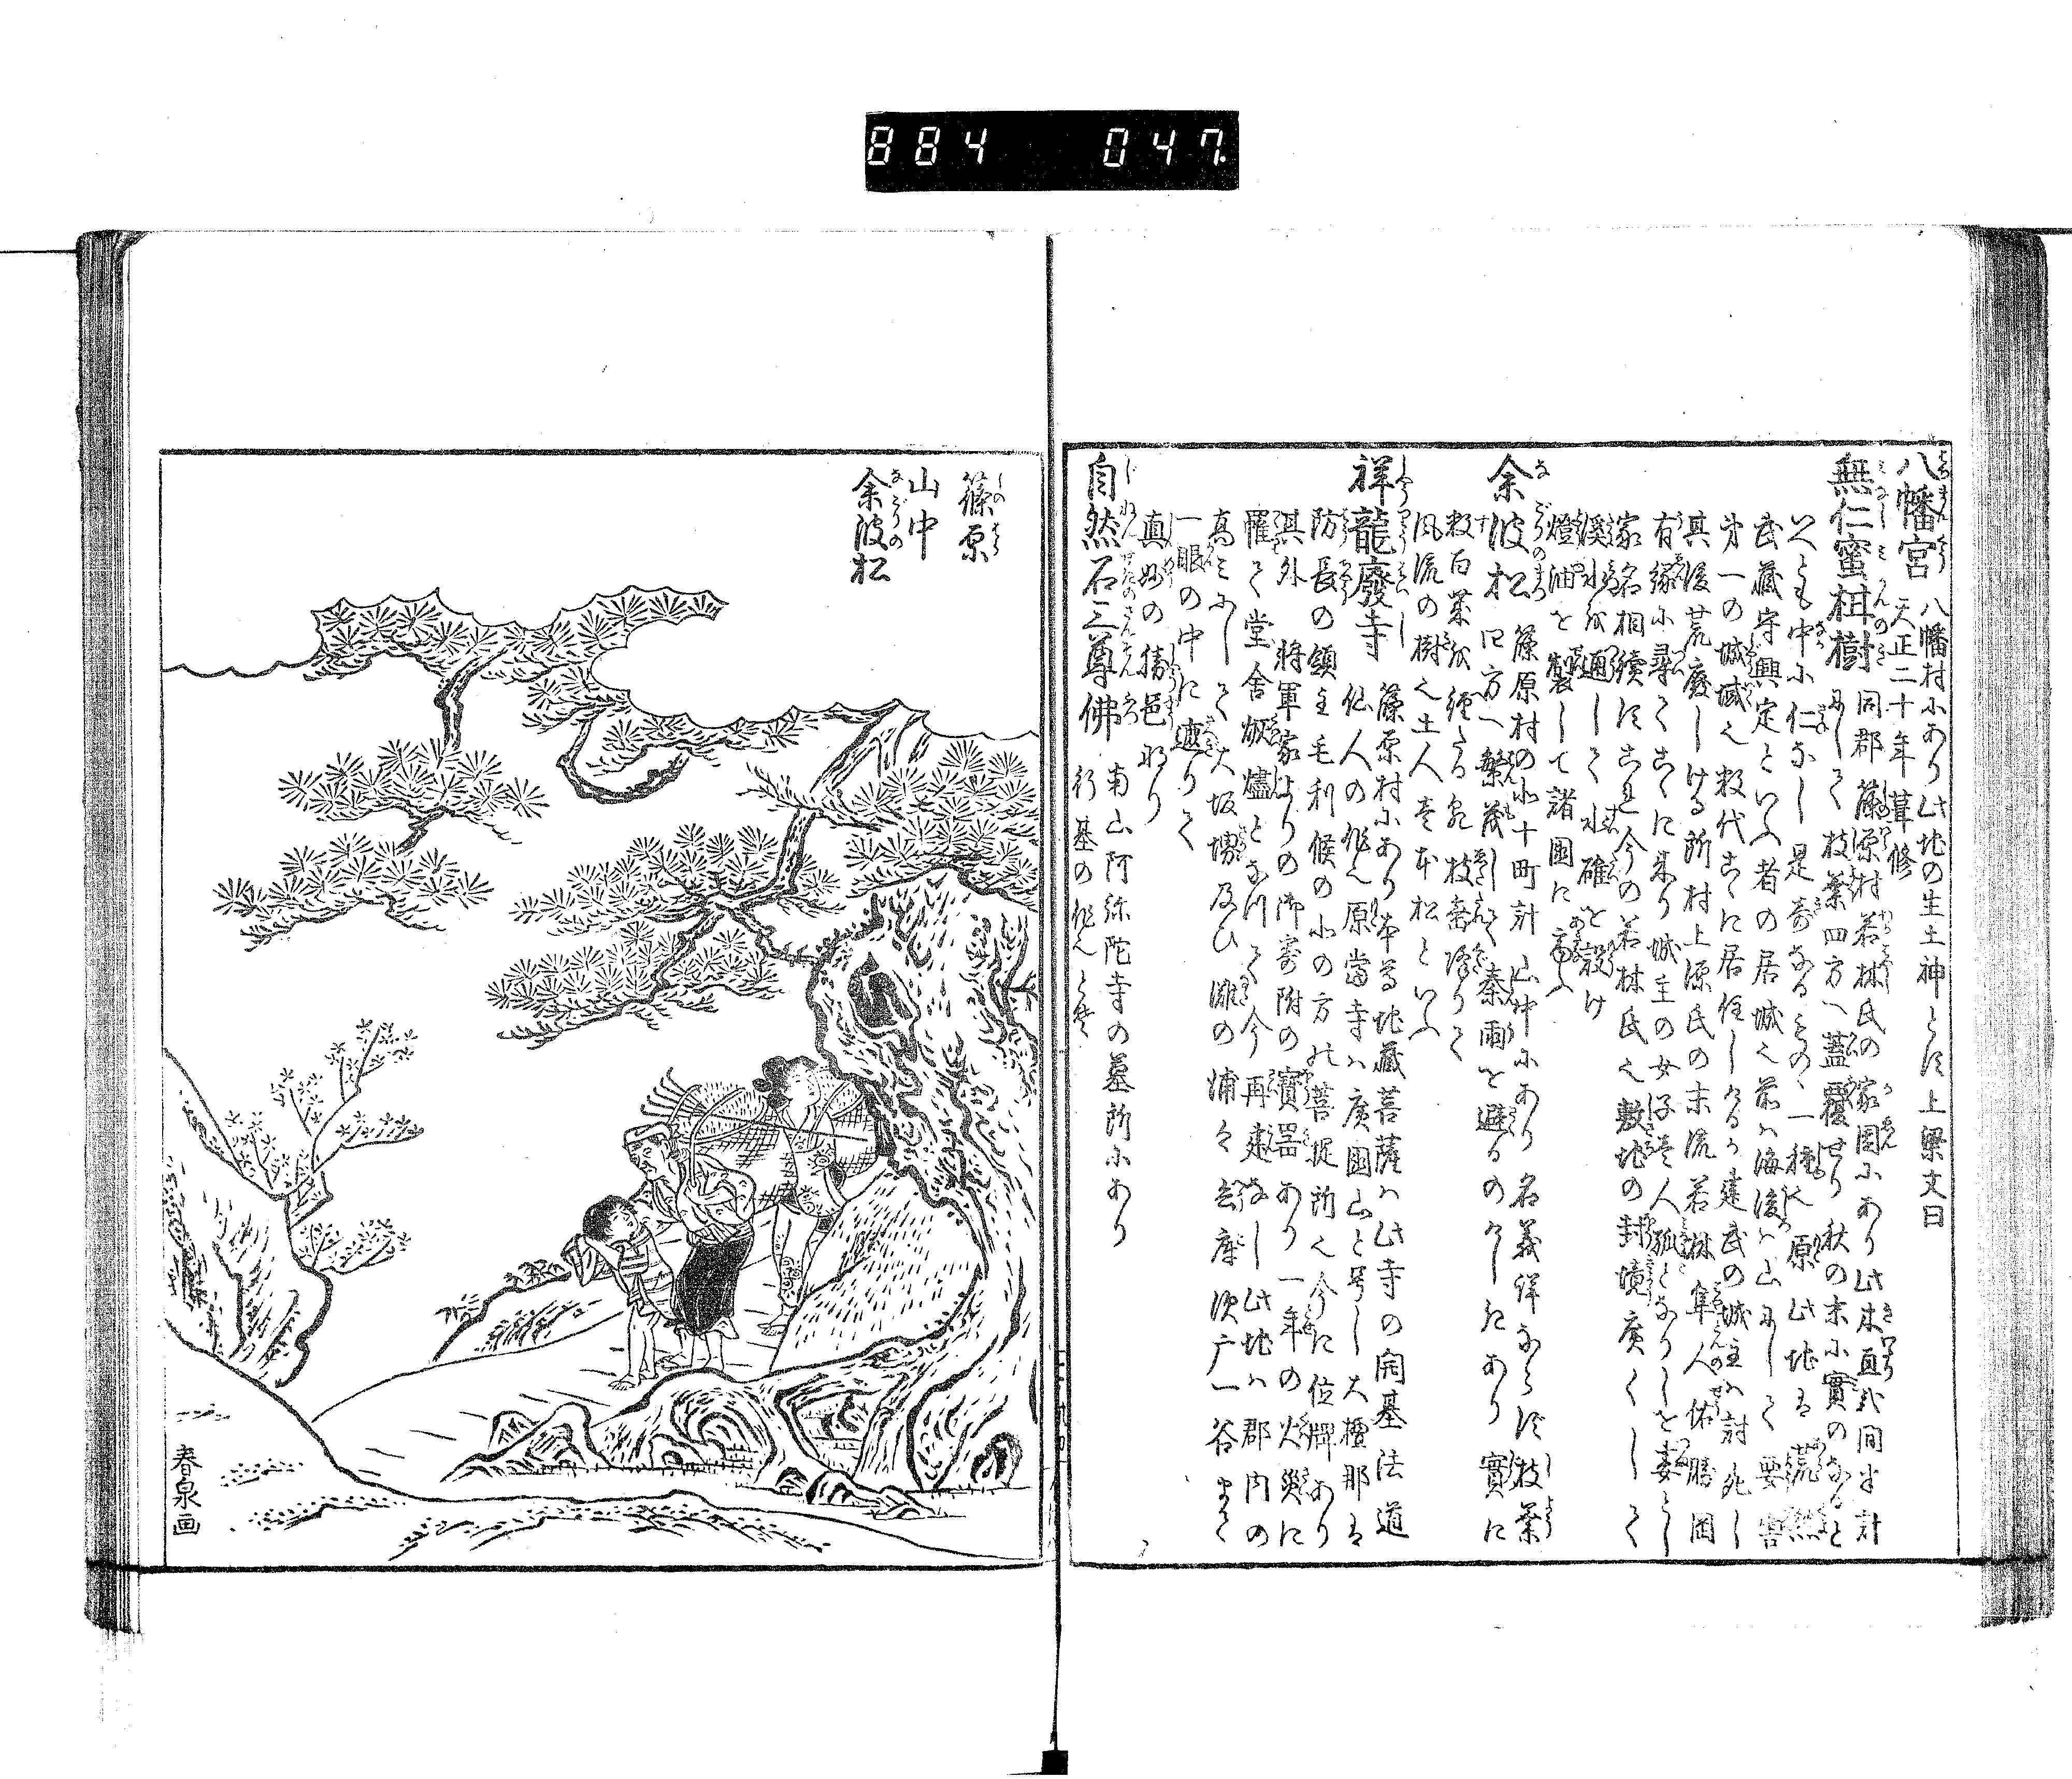 884 047
八幡宮 八幡村にあり此地の生土神とす上梁文曰
天正二十年葺修
無仁蜜柑樹 同郡篠原村若林氏の家園にあり此木直弐間半計
にして枝葉四方へ蓋覆せり秋の末に實のなると
いへども中に仁なし是奇なるもの、一種也原此地は荒熊
武蔵守興定といふ者の居城也前は海後は山にして要害
第一の城域也数代こゝに居住しけるか建武の城主は討死し
其後荒廃しける所村上源氏の末流若林隼人佑勝岡
有縁に尋てこゝに来り城主の女子壱人孤となりしを妻とし
家名相續す是今の若林氏也敷地の封境廣くして
渓水を通して水碓を設け
燈油を製して諸国に商ふ
余波松 篠原村の北十町計山中にあり名義詳ならす枝葉
四方へ繁茂して秦雨を避るのけしきあり實に
数百歳を經たる老枝垂降りて
風流の樹也土人壱本松といふ
祥龍廢寺 篠原村にあり本尊地蔵菩薩は此寺の開基法道
仙人の作也原當寺は廣国山と号し大檀那は
防長の領主毛利候の北の方の菩提所也今に位牌あり
其外将軍家よりの御寄附の寳器あり一年の火災に
罹て堂舎灰燼となりて今再建なし此地は郡内の
高みにして大坂堺及ひ灘の浦々兵庫須广一谷まて
一眼の中に遮りて
真妙の勝邑なり
自然石三尊佛 南山阿弥陀寺の墓所にあり
行基の作也とぞ
篠原
山中
余波松
春泉画